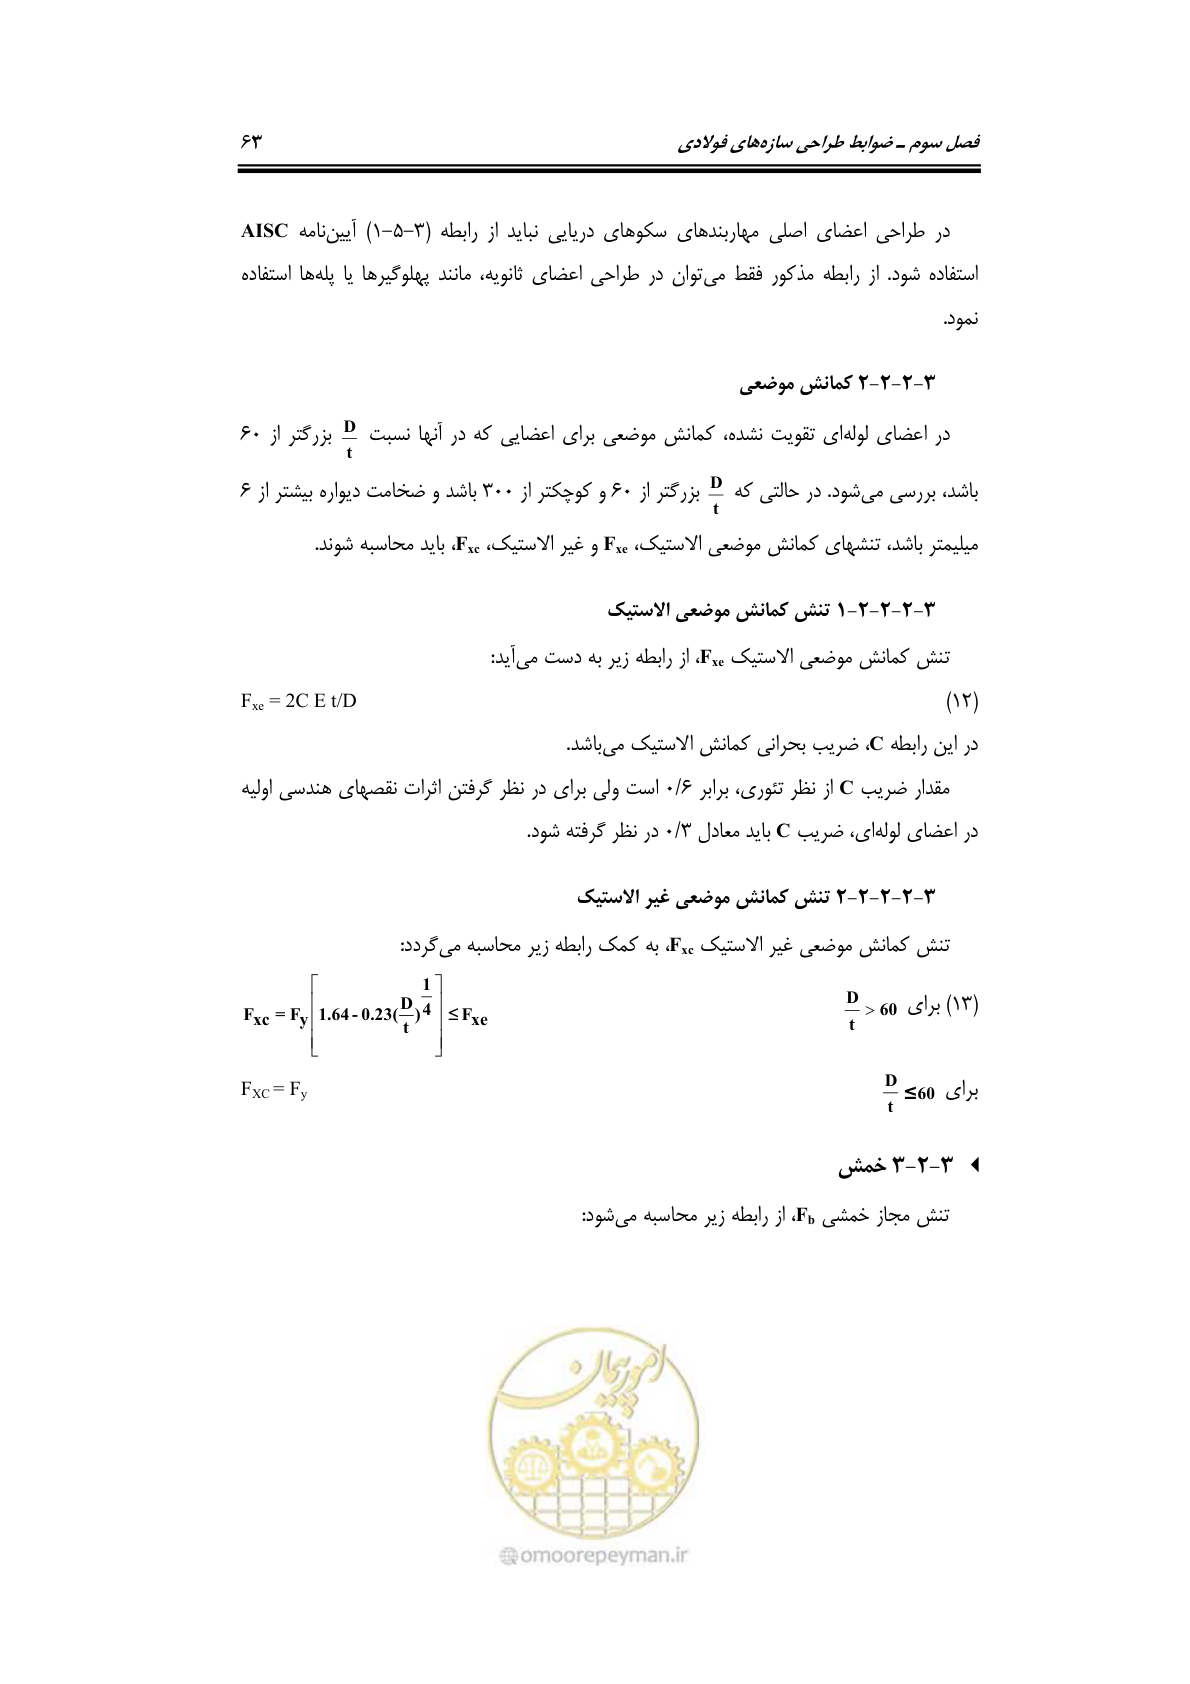 فصل سوم ـ ضوابط طراحی سازه‌های فولادی ۶۳
در طراحی اعضای اصلی مهاربندهای سکوهای دریایی نباید از رابطه (۳-۵-۱) آیین‌نامه AISC
استفاده شود. از رابطه مذکور فقط می‌توان در طراحی اعضای ثانویه، مانند پهلوگیرها یا پله‌ها استفاده
نمود.
۳-۲-۲-۲ کمانش موضعی
در اعضای لوله‌ای تقویت نشده، کمانش موضعی برای اعضایی که در آنها نسبت D/t بزرگتر از ۶۰
باشد، بررسی می‌شود. در حالتی که D/t بزرگتر از ۶۰ و کوچکتر از ۳۰۰ باشد و ضخامت دیواره بیشتر از ۶
میلیمتر باشد، تنشهای کمانش موضعی الاستیک، Fxe و غیر الاستیک، Fxc، باید محاسبه شوند.
۳-۲-۲-۲-۱ تنش کمانش موضعی الاستیک
تنش کمانش موضعی الاستیک Fxe، از رابطه زیر به دست می‌آید:
(۱۲) Fxe = 2C E t/D
در این رابطه C، ضریب بحرانی کمانش الاستیک می‌باشد.
مقدار ضریب C از نظر تئوری، برابر ۰/۶ است ولی برای در نظر گرفتن اثرات نقصهای هندسی اولیه
در اعضای لوله‌ای، ضریب C باید معادل ۰/۳ در نظر گرفته شود.
۳-۲-۲-۲-۲ تنش کمانش موضعی غیر الاستیک
تنش کمانش موضعی غیر الاستیک Fxc، به کمک رابطه زیر محاسبه می‌گردد:
(۱۳) برای D/t > 60 Fxc = Fy[1.64 - 0.23(D/t)^1/4] ≤ Fxe
برای D/t ≤ 60 FXC = Fy
۳-۲-۳ خمش
تنش مجاز خمشی Fb، از رابطه زیر محاسبه می‌شود:
امور پیمان
@omoorepeyman.ir